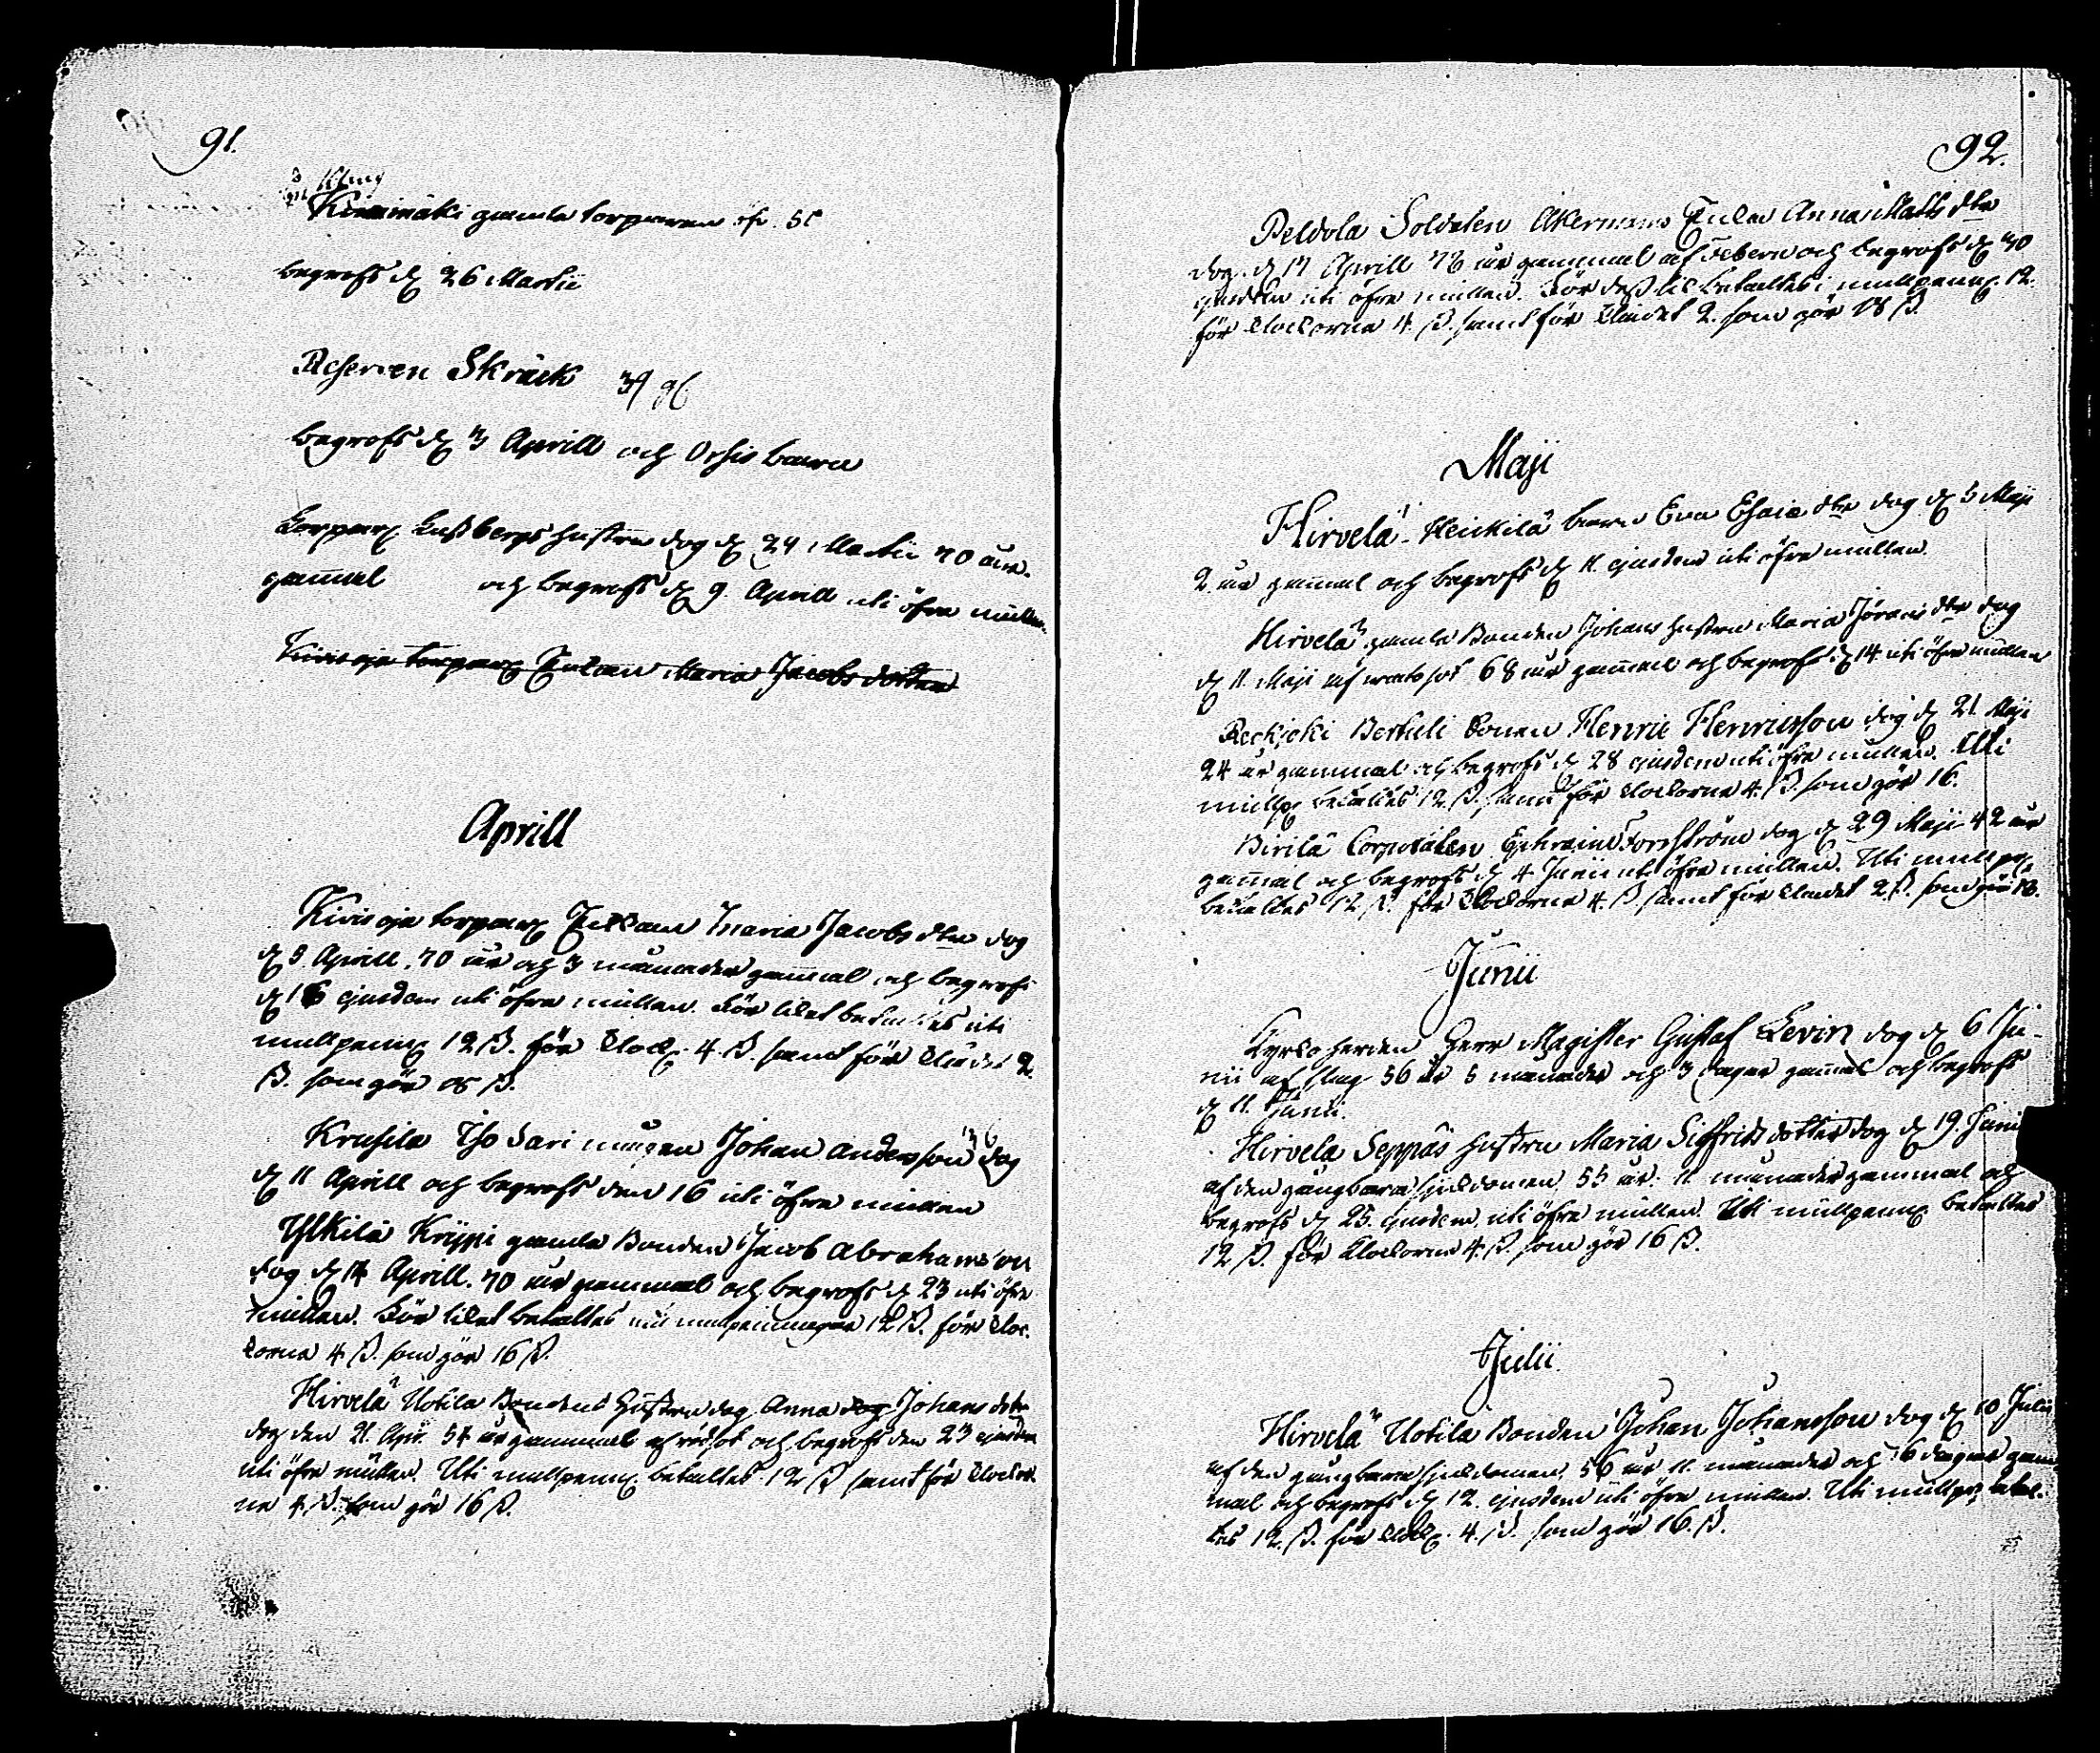 91.
Kinnimäki gamla torparen
begrofs d 26 Martii
Reserven Skräck
begrofs d 3 Aprill och Orsis barn
Torpar hustru dog d 24 Martii 70 åar
gamal och begrofs d 9. Aprill uti öfre mullen
Kivioja torpar Enkan Maria Jacobs dotter
Aprill
Kivioja torpar Enkan Maria Jacobs dtr dog
d 8 Aprill, 70 åar och 3 månader gammal och begrofs
d 16 ejusdem uti öfre mullen. För liket betaltes uti
mullpenn 12 ß. för Klock. 4 ß. samt för Klädet 2
ß. som gör 18 ß.
Krusila Iso Sari mågen Johan Andersson dog
d 11 Aprill och begrofs den 16 uti öfre mullen
Ylkilä Krijppi gamla Bonden Jacob Abrahamsson
dog d 14 Aprill. 70 åar gammal och begrofs d 23 uti öfre
mullen. För liket betaltes uti mullpenningar 12 ß. för Kloc-
korna 4 ß. som gör 16 ß.
Hirvelä Uotila Bondens Hustru dog Anna dog Johans dotr
dog den 21. Apr. 54 åar gammal af rödsot och begrofs den 23 ejusdem
uti öfre mullen. Uti mullpenn betaltes 12 ß samt för Klockor-
na 4 ß. som gör 16 ß.
92.
Peldola Soldaten Åkermans Enka Anna Matts dtr
dog. d 17 Aprill 76 åar gammal af febern och begrofs d 30
ejusdem uti öfre mullen. För dess lik betaltes i mullpenn. 12.
för Klockorna 4. ß. samt för Klädet 2. som gör 18 ß.
Maji
Hirvelä Heickilä barn Eva Esaiæ dtr dog d 5 Maji
2. åar gamal och begrofs d 11. ejusdem uti öfre mullen.
Hirvelä gamla Bonden Johans hustru Maria Jörans dtr dog
d 11. Maji af 68 åar gammal och begrofs d 14 uti öfre mullen
Reckjoki Bertuli Sonen Henric Henricsson dog d 21 Maji
24 åar gammal och begrofs d 28 ejusdem uti öfre mullen. Uti
mullp betaltes 12. ß. samt för Klockorna 4. ß. som gör 16.
Pirilä Corporalen Ephraim Forsström dog d 29 Maji 42 åar
gamal och begrofs d 4 Junii uti öfre mullen. Uti mullp
betaltes 12 ß. för Klockorna 4. ß samt för Klädet 2 ß. som gör 18.
Junii
Kyrkoherden Herr Magister Gustaf Levin dog d 6 Ju-
nii af slag 56 åar 5 månader och 3 dagar gamal och begrofs
d 11. Junii.
Hirvelä Seppäs hustru Maria Sigfrids dotter dog d 19. Junii
af den gångbara sjukdomen, 55 åar 11. månader gammal och
begrofs d 25. ejusdem uti öfre mullen. Uti mullpenn betaltes
12 ß. för Klockorna 4. ß. som gör 16 ß.
Julii.
Hirvelä Uotila Bonden Johan Johansson dog d 10 Julii
af den gångbara sjukdomen, 56 åar 11. månader och 16 dagar gam-
mal och begrofs d 12. ejusdem uti öfre mullen. Uti mullp betal-
tes 12. ß. för Klock. 4. ß. som gör 16. ß.